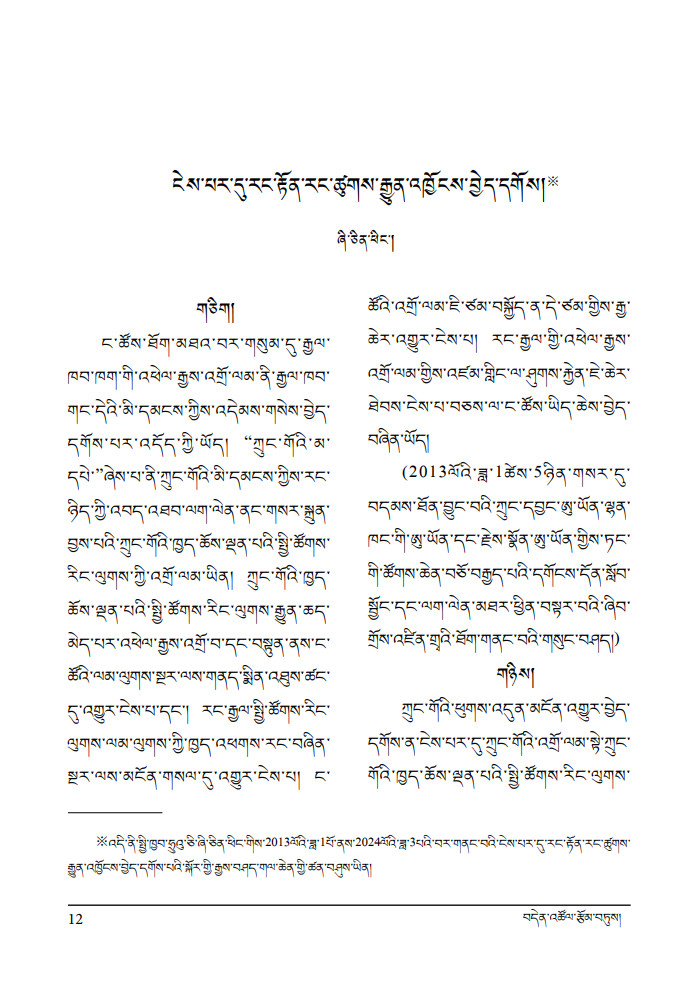 ངེས་པར་དུ་རང་རྟོན་རང་ཚུགས་རྒྱུན་འཁྱོངས་བྱེད་དགོས།※
ཞི་ཅིན་ཕིང་།
གཅིག
ང་ཚོས་ཐོག་མཐའ་བར་གསུམ་དུ་རྒྱལ་
ཁབ་ཁག་གི་འཕེལ་རྒྱས་འགྲོ་ལམ་ནི་རྒྱལ་ཁབ་
གང་དེའི་མི་དམངས་ཀྱིས་འདེམས་གསེས་བྱེད་
དགོས་པར་འདོད་ཀྱི་ཡོད། “ཀྲུང་གོའི་མ་
དཔེ་”ཞེས་པ་ནི་ཀྲུང་གོའི་མི་དམངས་ཀྱིས་རང་
ཉིད་ཀྱི་འབད་འཐབ་ལག་ལེན་ནང་གསར་སྐྲུན་
བྱས་པའི་ཀྲུང་གོའི་ཁྱད་ཆོས་ལྡན་པའི་སྤྱི་ཚོགས་
རིང་ལུགས་ཀྱི་འགྲོ་ལམ་ཡིན། ཀྲུང་གོའི་ཁྱད་
ཆོས་ལྡན་པའི་སྤྱི་ཚོགས་རིང་ལུགས་རྒྱུན་ཆད་
མེད་པར་འཕེལ་རྒྱས་འགྲོ་བ་དང་བསྟུན་ནས་ང་
ཚོའི་ལམ་ལུགས་སྔར་ལས་གནད་སྨིན་འཐུས་ཚང་
དུ་འགྱུར་ངེས་པ་དང་། རང་རྒྱལ་སྤྱི་ཚོགས་རིང་
ལུགས་ལམ་ལུགས་ཀྱི་ཁྱད་འཕགས་རང་བཞིན་
སྔར་ལས་མངོན་གསལ་དུ་འགྱུར་ངེས་པ། ང་
ཚོའི་འགྲོ་ལམ་ཇི་ཙམ་བསྐྱོད་ན་དེ་ཙམ་གྱིས་རྒྱ་
ཆེར་འགྱུར་ངེས་པ། རང་རྒྱལ་གྱི་འཕེལ་རྒྱས་
འགྲོ་ལམ་གྱིས་འཛམ་གླིང་ལ་ཤུགས་རྐྱེན་ཇེ་ཆེར་
ཐེབས་ངེས་པ་བཅས་ལ་ང་ཚོས་ཡིད་ཆེས་བྱེད་
བཞིན་ཡོད།
(2013ལོའི་ཟླ་1ཚེས་5ཉིན་གསར་དུ་
བདམས་ཐོན་བྱུང་བའི་ཀྲུང་དབྱང་ཨུ་ཡོན་ལྷན་
ཁང་གི་ཨུ་ཡོན་དང་རྗེས་སྣོན་ཨུ་ཡོན་གྱིས་ཏང་
གི་ཚོགས་ཆེན་བཅོ་བརྒྱད་པའི་དགོངས་དོན་སློབ་
སྦྱོང་དང་ལག་ལེན་མཐར་ཕྱིན་བསྟར་བའི་ཞིབ་
གྲོས་འཛིན་གྲྭའི་ཐོག་གནང་བའི་གསུང་བཤད།)
གཉིས།
ཀྲུང་གོའི་ཕུགས་འདུན་མངོན་འགྱུར་བྱེད་
དགོས་ན་ངེས་པར་དུ་ཀྲུང་གོའི་འགྲོ་ལམ་སྟེ་ཀྲུང་
གོའི་ཁྱད་ཆོས་ལྡན་པའི་སྤྱི་ཚོགས་རིང་ལུགས་
※འདི་ནི་སྤྱི་ཁྱབ་ཧྲུའུ་ཅི་ཞི་ཅིན་ཕིང་གིས་2013ལོའི་ཟླ་1པོ་ནས་2024ལོའི་ཟླ་3པའི་བར་གནང་བའི་ངེས་པར་དུ་རང་རྟོན་རང་ཚུགས་
རྒྱུན་འཁྱོངས་བྱེད་དགོས་པའི་སྐོར་གྱི་རྒྱས་བཤད་གལ་ཆེན་གྱི་ཚན་བཤུས་ཡིན།
12
བདེན་འཚོལ་རྩོམ་བཏུས།